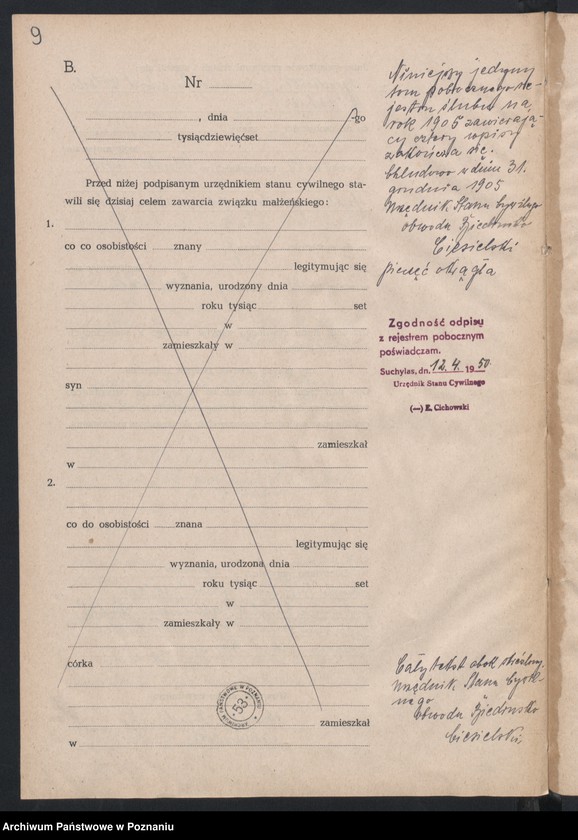 9
B.
Nr
, dnia -go
tysiącdziewięćset
Przed niżej podpisanym urzędnikiem stanu cywilnego sta-
wili się dzisiaj celem zawarcia związku małżeńskiego:
1.
co co osobistości znany
legitymując się
wyznania, urodzony dnia
roku tysiąc set
w
zamieszkały w
syn
zamieszkał
w
2.
co do osobistości znana
legitymując się
wyznania, urodzona dnia
roku tysiąc set
w
zamieszkały w
córka
zamieszkał
w
Niniejszy jedyny
tom pobocznego re-
jestru ślubu na
rok 1905 zawierają-
cy cztery wpisy
zakończa się.
w dniu 31.
grudnia 1905
Urzędnik Stanu Cywilnego
obwodu
Ciesielski
pieczęć okrągła
Zgodność odpisu
z rejestrem pobocznym
poświadczam.
Suchylas, dn. 12. 4. 1950.
Urzędnik Stanu Cywilnego
(—) E. Cichowski
Cały tekst obok skreślony.
Urzędnik Stanu Cywil-
nego
obwodu
Ciesielski
ARCHIWUM PAŃSTWOWE W POZNANIU
53
Archiwum Państwowe w Poznaniu